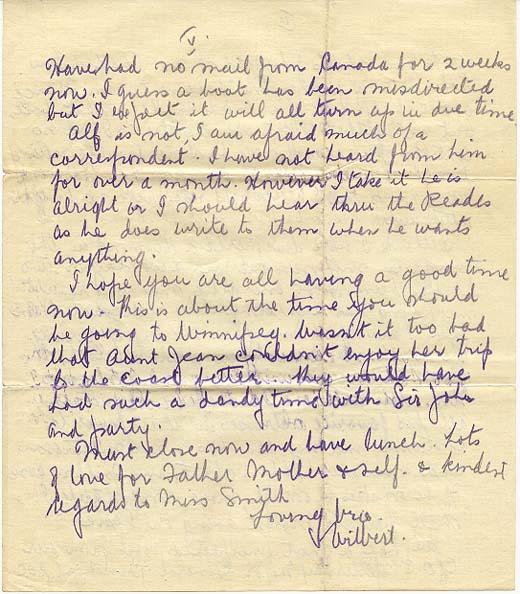 V.
Have had no mail from Canada for 2 weeks
now. I guess a boat has been misdirected
but I expect it will all turn up in due time.
Alf is not, I am afraid much of a
correspondent. I have not heard from him
for over a month. However I take it he is
alright or I should hear thru the Reades
as he does write to them when he wants
anything.
I hope you are all having a good time
now. This is about the time you should
be going to Winnipeg. Wasn't it too bad
that Aunt Jean couldn't enjoy her trip
to the coast better. They would have
had such a dandy time with Sir John
and party.
Must close now and have lunch. Lots
of love for Father Mother & self. & kindest
regards to Miss Smith
Loving bro.
Wilbert.